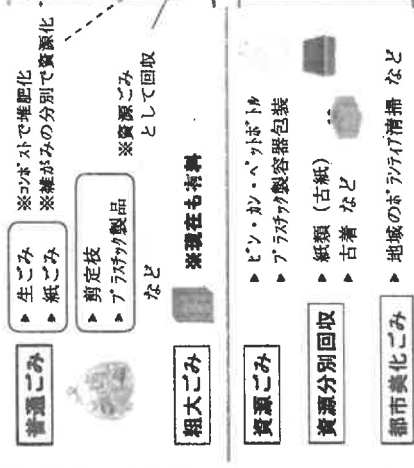 普通ごみ
▶ 生ごみ ※コンポストで堆肥化
▶ 紙ごみ ※雑がみの分別で資源化
▶ 剪定枝
▶ プラスチック製品
※資源ごみ
として回収
など
粗大ごみ
※現在も有料
資源ごみ
▶ ビン・カン・ペットボトル
▶ プラスチック製容器包装
資源分別回収
▶ 紙類（古紙）
▶ 古着 など
都市美化ごみ
▶ 地域のボランティア清掃 など